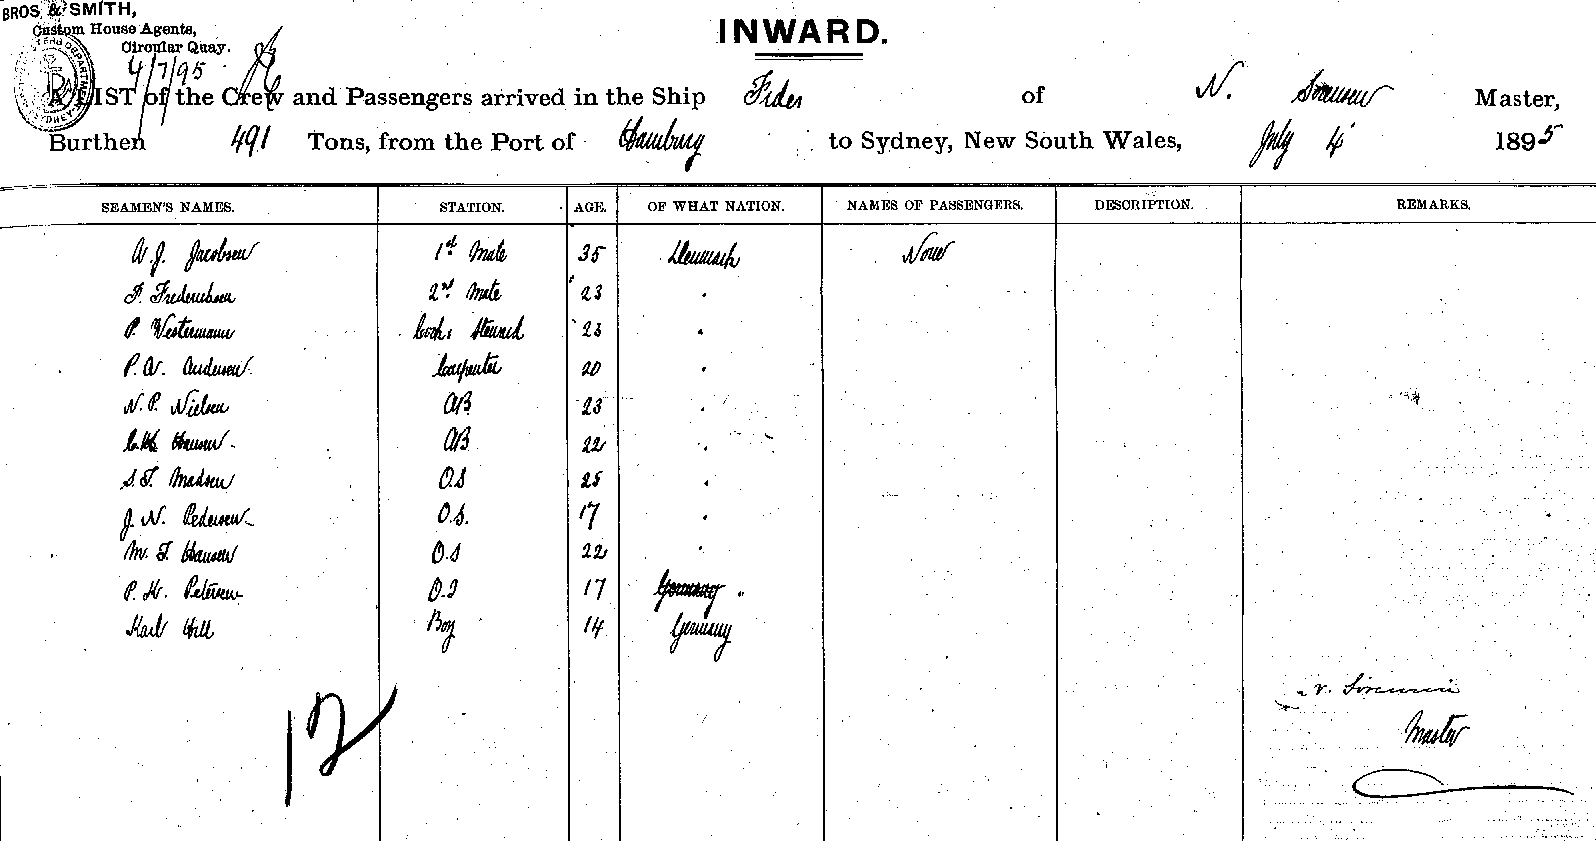 BROS. & SMITH,
Custom House Agents,
Circular Quay.
4/7/95
INWARD.
A LIST of the Crew and Passengers arrived in the Ship Fides of N. Sorensen Master,
Burthen 491 Tons, from the Port of Hamburg to Sydney, New South Wales, July 4 1895
SEAMEN'S NAMES. STATION. AGE. OF WHAT NATION. NAMES OF PASSENGERS. DESCRIPTION. REMARKS.
A. J. Jacobsen 1st Mate 35 Denmark None
F. Frederiksen 2nd Mate 23 "
P. Westermann Cook & Steward 23 "
P. A. Andersen Carpenter 20 "
N. P. Nielsen AB 23 "
Hansen AB 22 "
S. F. Madsen O.S 25 "
J. N. Pedersen O.S. 17 "
M. F. Hansen O.S 22 "
P. H. Petersen O.S 17 Germany "
Karl Hill Boy 14 Germany
12
N. Sorensen
Master